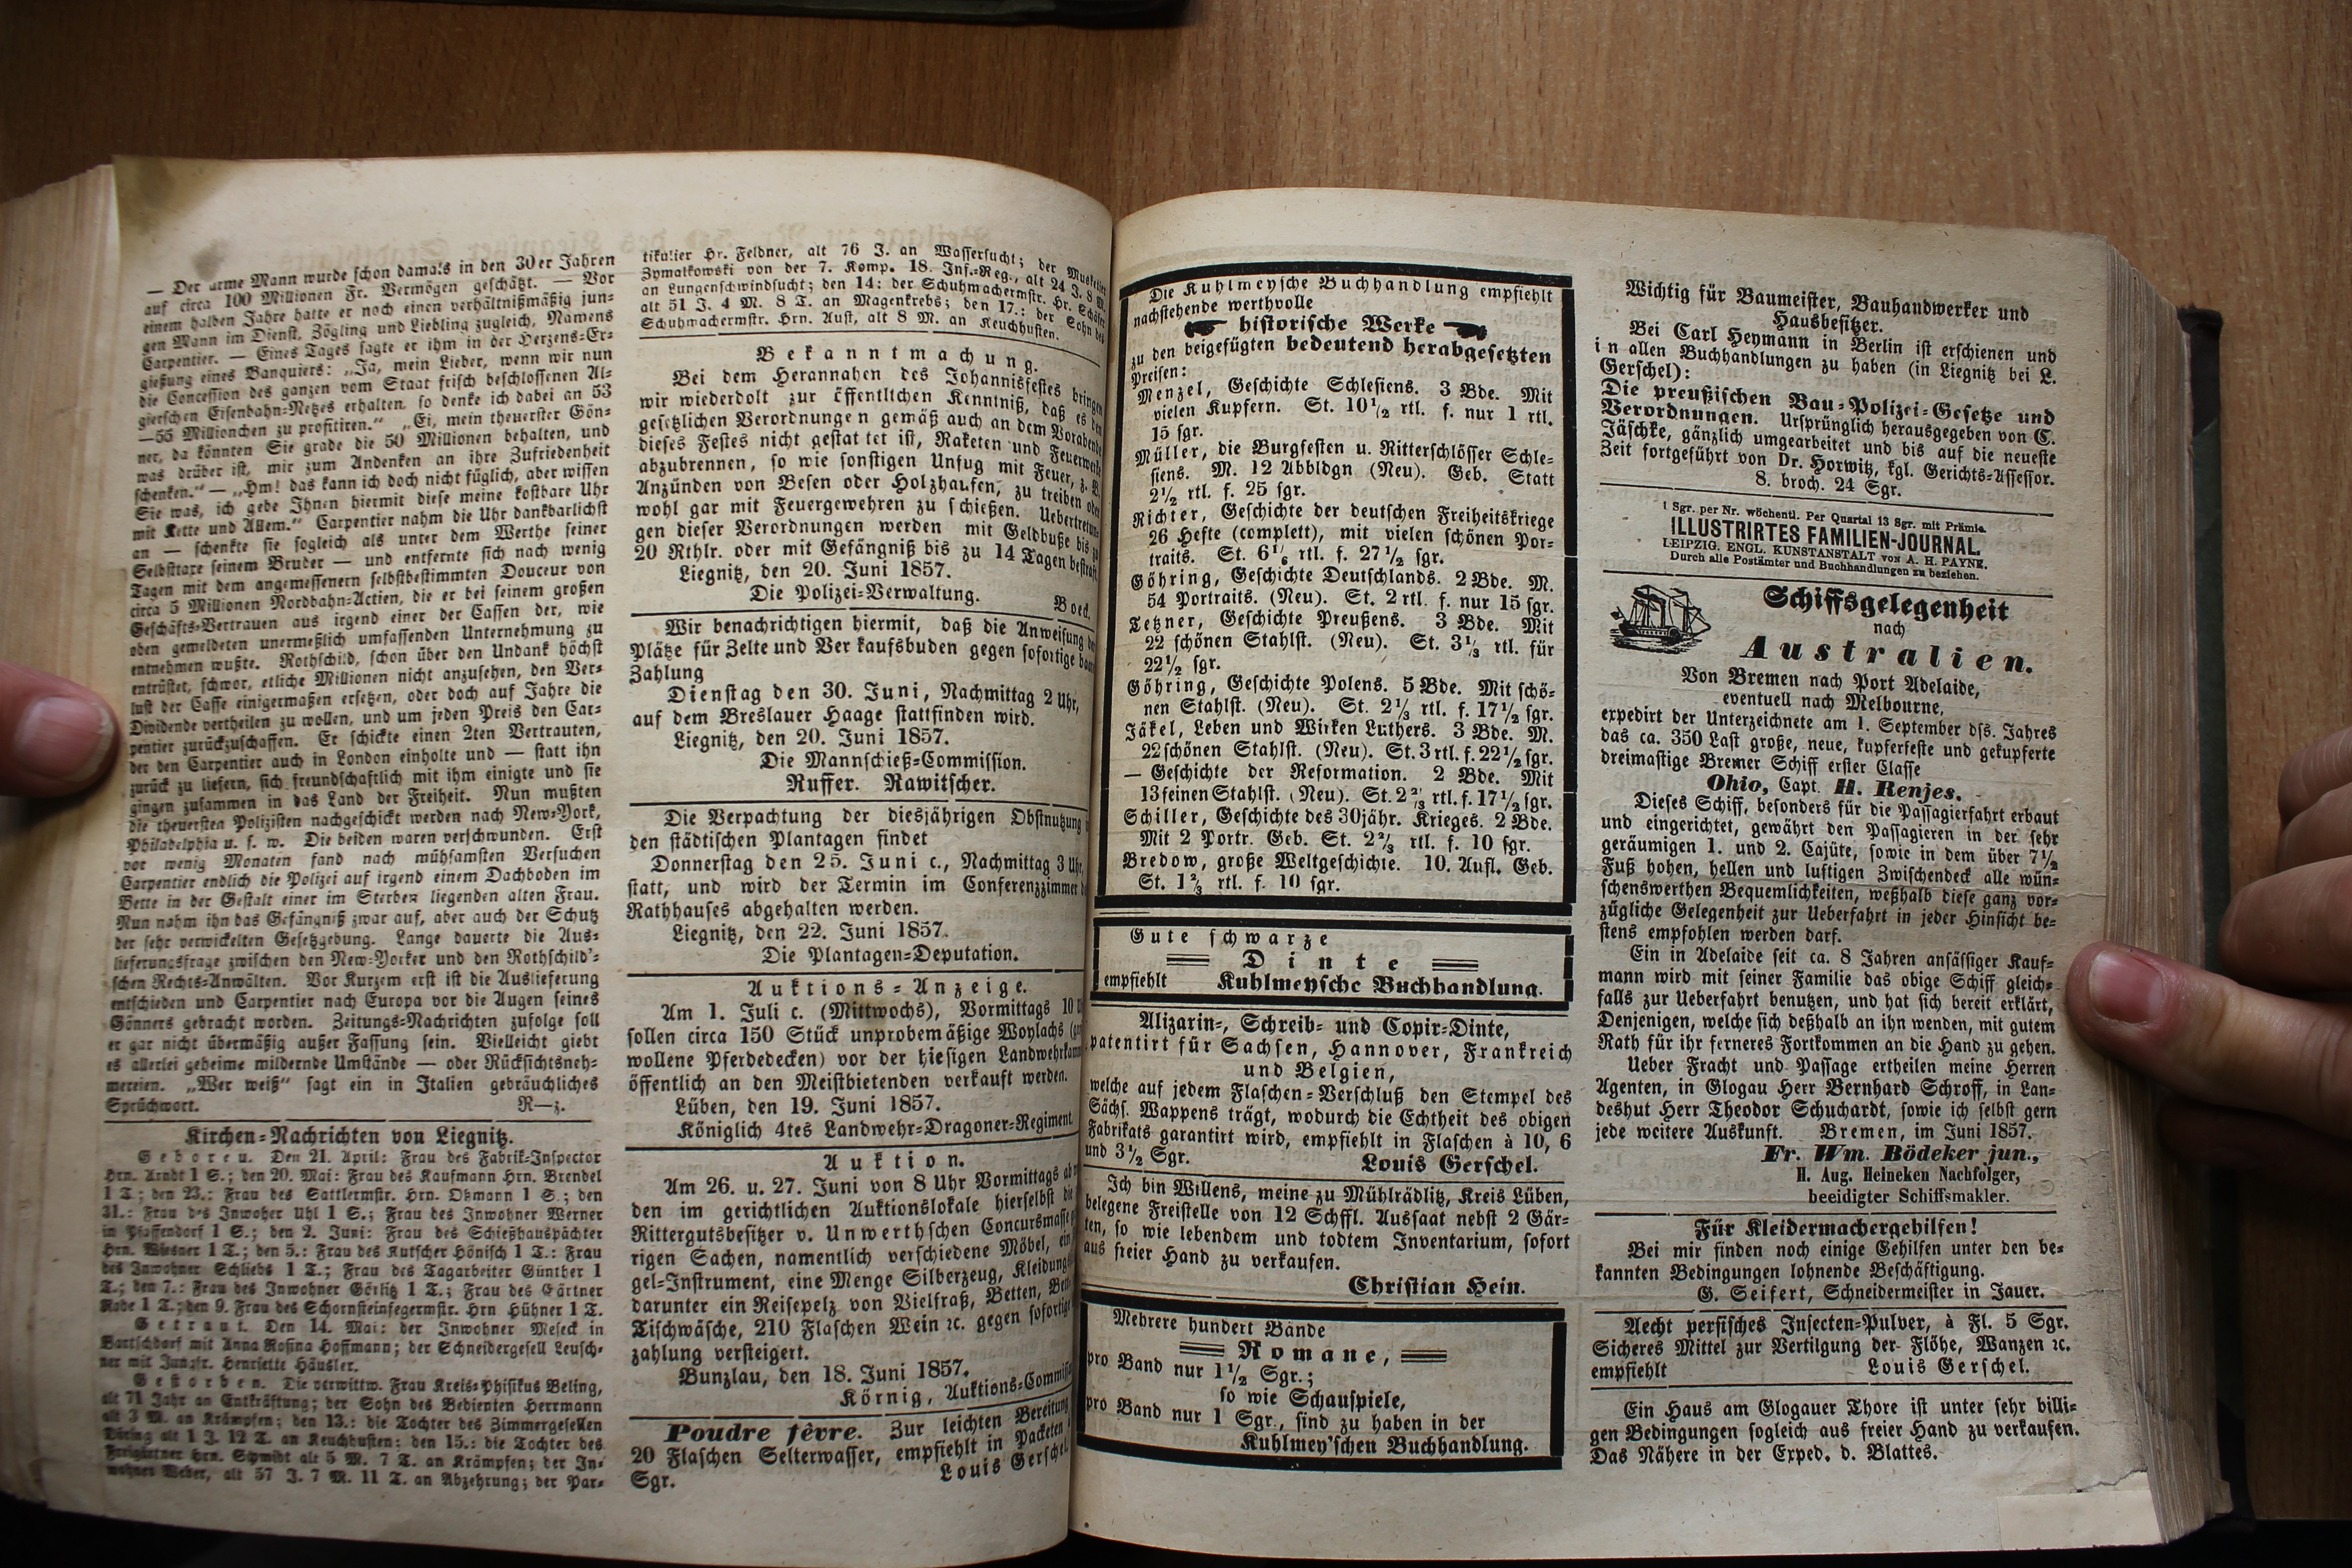 — Der arme Mann wurde schon damals in den 30er Jahren
auf circa 100 Millionen Fr. Vermögen geschätzt. — Vor
einem halben Jahre hatte er noch einen verhältnißmäßig jun-
gen Mann im Dienst, Zögling und Liebling zugleich, Namens
Carpentier. — Eines Tages sagte er ihm in der Herzens-Er-
gießung eines Banquiers: „Ja, mein Lieber, wenn wir nun
die Concession des ganzen vom Staat frisch beschlossenen Al-
gierschen Eisenbahn-Netzes erhalten, so denke ich dabei an 53
—55 Milliönchen zu profitiren.“ „Ei, mein theuerster Gön-
ner, da könnten Sie grade die 50 Millionen behalten, und
was drüber ist, mir zum Andenken an ihre Zufriedenheit
schenken.“ — „Hm! das kann ich doch nicht füglich, aber wissen
Sie was, ich gebe Ihnen hiermit diese meine kostbare Uhr
mit Kette und Allem.“ Carpentier nahm die Uhr dankbarlichst
an — schenkte sie sogleich als unter dem Werthe seiner
Selbsttaxe seinem Bruder — und entfernte sich nach wenig
Tagen mit dem angemessenern selbstbestimmten Douceur von
circa 5 Millionen Nordbahn-Actien, die er bei seinem großen
Geschäfts-Vertrauen aus irgend einer der Cassen der, wie
oben gemeldeten unermeßlich umfassenden Unternehmung zu
entnehmen wußte. Rothschild, schon über den Undank höchst
entrüstet, schwor, etliche Millionen nicht anzusehen, den Ver-
lust der Casse einigermaßen ersetzen, oder doch auf Jahre die
Dividende vertheilen zu wollen, und um jeden Preis den Car-
pentier zurückzuschaffen. Er schickte einen 2ten Vertrauten,
der den Carpentier auch in London einholte und — statt ihn
zurück zu liefern, sich freundschaftlich mit ihm einigte und sie
gingen zusammen in das Land der Freiheit. Nun mußten
die theuersten Polizisten nachgeschickt werden nach New-York,
Philadelphia u. s. w. Die beiden waren verschwunden. Erst
vor wenig Monaten fand nach mühsamsten Versuchen
Carpentier endlich die Polizei auf irgend einem Dachboden im
Bette in der Gestalt einer im Sterben liegenden alten Frau.
Nun nahm ihn das Gefängniß zwar auf, aber auch der Schutz
der sehr verwickelten Gesetzgebung. Lange dauerte die Aus-
lieferungsfrage zwischen den New-Yorker und den Rothschild'-
schen Rechts-Anwälten. Vor Kurzem erst ist die Auslieferung
entschieden und Carpentier nach Europa vor die Augen seines
Gönners gebracht worden. Zeitungs-Nachrichten zufolge soll
er gar nicht übermäßig außer Fassung sein. Vielleicht giebt
es allerlei geheime mildernde Umstände — oder Rücksichtsneh-
mereien. „Wer weiß“ sagt ein in Italien gebräuchliches
Sprüchwort. R—z.
Kirchen-Nachrichten von Liegnitz.
Geboren. Den 21. April: Frau des Fabrik-Inspector
Hrn. Arndt 1 S.; den 20. Mai: Frau des Kaufmann Hrn. Brendel
1 T.; den 23.: Frau des Sattlermstr. Hrn. Oßmann 1 S.; den
31.: Frau des Inwoher Uhl 1 S.; Frau des Inwohner Werner
in Pfaffendorf 1 S.; den 2. Juni: Frau des Schießhauspächter
Hrn. Wiesner 1 T.; den 5.: Frau des Kutscher Hönisch 1 T.: Frau
des Inwohner Schliebs 1 T.; Frau des Tagarbeiter Günther 1
T.; den 7.: Frau des Inwohner Görlitz 1 T.; Frau des Gärtner
Rode 1 T.; den 9. Frau des Schornsteinfegermstr. Hrn Hübner 1 T.
Getraut. Den 14. Mai: der Inwohner Meseck in
Bartschdorf mit Anna Rosina Hoffmann; der Schneidergesell Leusch-
ner mit Jungfr. Henriette Häusler.
Gestorben. Die verwittw. Frau Kreis-Phisikus Beling,
alt 71 Jahr an Entkräftung; der Sohn des Bedienten Herrmann
alt 3 M. an Krämpfen; den 13.: die Tochter des Zimmergesellen
alt 1 J. 12 T. an Keuchhusten; den 15.: die Tochter des
Freigärtner Hrn. Schmidt alt 5 M. 7 T. an Krämpfen; der In-
wohner Weber, alt 57 J. 7 M. 11 T. an Abzehrung; der Par-
tikulier Hr. Feldner, alt 76 J. an Wassersucht; der Musketier
Zymalkowski von der 7. Komp. 18. Inf.-Reg., alt 24 J. 8 M.
an Lungenschwindsucht; den 14: der Schuhmachermstr. Hr. Schäfer
alt 51 J. 4 M. 8 T. an Magenkrebs; den 17.: der Sohn des
Schuhmachermstr. Hrn. Aust, alt 8 M. an Keuchhusten.
Bekanntmachung.
Bei dem Herannahen des Johannisfestes bringen
wir wiederholt zur öffentlichen Kenntniß, daß es den
gesetzlichen Verordnungen gemäß auch an dem Vorabende
dieses Festes nicht gestattet ist, Raketen und Feuerwerke
abzubrennen, so wie sonstigen Unfug mit Feuer, z. B.
Anzünden von Besen oder Holzhaufen, zu treiben oder
wohl gar mit Feuergewehren zu schießen. Uebertretun-
gen dieser Verordnungen werden mit Geldbuße bis zu
20 Rthlr. oder mit Gefängniß bis zu 14 Tagen bestraft.
Liegnitz, den 20. Juni 1857.
Die Polizei-Verwaltung.
Boeck.
Wir benachrichtigen hiermit, daß die Anweisung der
Plätze für Zelte und Verkaufsbuden gegen sofortige baare
Zahlung
Dienstag den 30. Juni, Nachmittag 2 Uhr,
auf dem Breslauer Haage stattfinden wird.
Liegnitz, den 20. Juni 1857.
Die Mannschieß-Commission.
Ruffer. Rawitscher.
Die Verpachtung der diesjährigen Obstnutzung
den städtischen Plantagen findet
Donnerstag den 25. Juni c., Nachmittag 3 Uhr,
statt, und wird der Termin im Conferenzzimmer
Rathhauses abgehalten werden.
Liegnitz, den 22. Juni 1857.
Die Plantagen-Deputation.
Auktions-Anzeige.
Am 1. Juli c. (Mittwochs), Vormittags 10
sollen circa 150 Stück unprobemäßige Woylachs
wollene Pferdedecken) vor der hiesigen
öffentlich an den Meistbietenden verkauft werden.
Lüben, den 19. Juni 1857.
Königlich 4tes Landwehr-Dragoner-Regiment.
Auktion.
Am 26. u. 27. Juni von 8 Uhr Vormittags ab
den im gerichtlichen Auktionslokale hierselbst die
Rittergutsbesitzer v. Unwerthschen
rigen Sachen, namentlich verschiedene Möbel, ein
gel-Instrument, eine Menge Silberzeug,
darunter ein Reisepelz von Vielfraß, Betten,
Tischwäsche, 210 Flaschen Wein ꝛc. gegen sofortige
zahlung versteigert.
Bunzlau, den 18. Juni 1857.
Körnig,
Poudre fèvre. Zur leichten Bereitung
20 Flaschen Selterwasser, empfiehlt in Packeten
Sgr. Louis Gerschel.
Die Kuhlmeysche Buchhandlung empfiehlt
nachstehende werthvolle
historische Werke
zu den beigefügten bedeutend herabgesetzten
Preisen:
Menzel, Geschichte Schlesiens. 3 Bde. Mit
vielen Kupfern. St. 10½ rtl. f. nur 1 rtl.
15 sgr.
Müller, die Burgfesten u. Ritterschlösser Schle-
siens. M. 12 Abbldgn (Neu). Geb. Statt
2½ rtl. f. 25 sgr.
Richter, Geschichte der deutschen Freiheitskriege
26 Hefte (complett), mit vielen schönen Por-
traits. St. 6⅙ rtl. f. 27½ sgr.
Göhring, Geschichte Deutschlands. 2 Bde. M.
54 Portraits. (Neu). St. 2 rtl. f. nur 15 sgr.
Tetzner, Geschichte Preußens. 3 Bde. Mit
22 schönen Stahlst. (Neu). St. 3⅓ rtl. für
22½ sgr.
Göhring, Geschichte Polens. 5 Bde. Mit schö-
nen Stahlst. (Neu). St. 2⅓ rtl. f. 17½ sgr.
Jäkel, Leben und Wirken Luthers. 3 Bde. M.
22 schönen Stahlst. (Neu). St. 3 rtl. f. 22½ sgr.
— Geschichte der Reformation. 2 Bde. Mit
13 feinen Stahlst. (Neu). St. 2⅔ rtl. f. 17½ sgr.
Schiller, Geschichte des 30jähr. Krieges. 2 Bde.
Mit 2 Portr. Geb. St. 2⅔ rtl. f. 10 sgr.
Bredow, große Weltgeschichte. 10. Aufl. Geb.
St. 1⅔ rtl. f. 10 sgr.
Gute schwarze
Dinte
empfiehlt Kuhlmeysche Buchhandlung.
Alizarin-, Schreib- und Copir-Dinte,
patentirt für Sachsen, Hannover, Frankreich
und Belgien,
welche auf jedem Flaschen-Verschluß den Stempel des
Sächs. Wappens trägt, wodurch die Echtheit des obigen
Fabrikats garantirt wird, empfiehlt in Flaschen à 10, 6
und 3½ Sgr. Louis Gerschel.
Ich bin Willens, meine zu Mühlrädlitz, Kreis Lüben,
belegene Freistelle von 12 Schffl. Aussaat nebst 2 Gär-
ten, so wie lebendem und todtem Inventarium, sofort
aus freier Hand zu verkaufen.
Christian Hein.
Mehrere hundert Bände
Romane,
pro Band nur 1½ Sgr.;
so wie Schauspiele,
pro Band nur 1 Sgr., sind zu haben in der
Kuhlmey'schen Buchhandlung.
Wichtig für Baumeister, Bauhandwerker und
Hausbesitzer.
Bei Carl Heymann in Berlin ist erschienen und
in allen Buchhandlungen zu haben (in Liegnitz bei L.
Gerschel):
Die preußischen Bau-Polizei-Gesetze und
Verordnungen. Ursprünglich herausgegeben von C.
Jäschke, gänzlich umgearbeitet und bis auf die neueste
Zeit fortgeführt von Dr. Horwitz, kgl. Gerichts-Assessor.
8. broch. 24 Sgr.
1 Sgr. per Nr. wöchentl. Per Quartal 13 Sgr. mit Prämie.
ILLUSTRIRTES FAMILIEN-JOURNAL.
LEIPZIG. ENGL. KUNSTANSTALT von A. H. PAYNE.
Durch alle Postämter und Buchhandlungen zu beziehen.
Schiffsgelegenheit
nach
Australien.
Von Bremen nach Port Adelaide,
eventuell nach Melbourne,
expedirt der Unterzeichnete am 1. September dss. Jahres
das ca. 350 Last große, neue, kupferfeste und gekupferte
dreimastige Bremer Schiff erster Classe
Ohio, Capt. H. Renjes.
Dieses Schiff, besonders für die Passagierfahrt erbaut
und eingerichtet, gewährt den Passagieren in der sehr
geräumigen 1. und 2. Cajüte, sowie in dem über 7½
Fuß hohen, hellen und luftigen Zwischendeck alle wün-
schenswerthen Bequemlichkeiten, weßhalb diese ganz vor-
zügliche Gelegenheit zur Ueberfahrt in jeder Hinsicht be-
stens empfohlen werden darf.
Ein in Adelaide seit ca. 8 Jahren ansässiger Kauf-
mann wird mit seiner Familie das obige Schiff gleich-
falls zur Ueberfahrt benutzen, und hat sich bereit erklärt,
Denjenigen, welche sich deßhalb an ihn wenden, mit gutem
Rath für ihr ferneres Fortkommen an die Hand zu gehen.
Ueber Fracht und Passage ertheilen meine Herren
Agenten, in Glogau Herr Bernhard Schroff, in Lan-
deshut Herr Theodor Schuchardt, sowie ich selbst gern
jede weitere Auskunft. Bremen, im Juni 1857.
Fr. Wm. Bödeker jun.,
H. Aug. Heineken Nachfolger,
beeidigter Schiffsmakler.
Für Kleidermachergehilfen!
Bei mir finden noch einige Gehilfen unter den be-
kannten Bedingungen lohnende Beschäftigung.
G. Seifert, Schneidermeister in Jauer.
Aecht persisches Insecten-Pulver, à Fl. 5 Sgr.
Sicheres Mittel zur Vertilgung der Flöhe, Wanzen ꝛc.
empfiehlt Louis Gerschel.
Ein Haus am Glogauer Thore ist unter sehr billi-
gen Bedingungen sogleich aus freier Hand zu verkaufen.
Das Nähere in der Exped. d. Blattes.